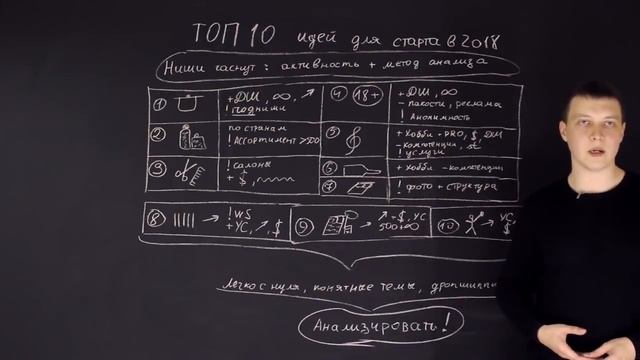 ТОП 10 идей для старта в 2018
Ниши гаснут: активность + метод анализа
1 + ДШ, ∞, ↗
! годными
2 по странам
! Ассортимент > 500
3 ! салоны
+ $,
4 18+ + ДШ, ∞
- пакости, реклама
! Анонимность
5 + Хобби - PRO, $, ДШ
- компетенции, st
! услуги
6 + хобби - компетенции
7 ! фото + структура
8 → ! WS
+ УС, ↗, $
9 → ↗ + $, УС
10 → УС,
$
Легко с нуля, понятные темы, дропшиппи
Анализировать!